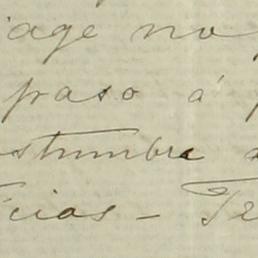 iage no
paso á p
ostumbre
icias - Te